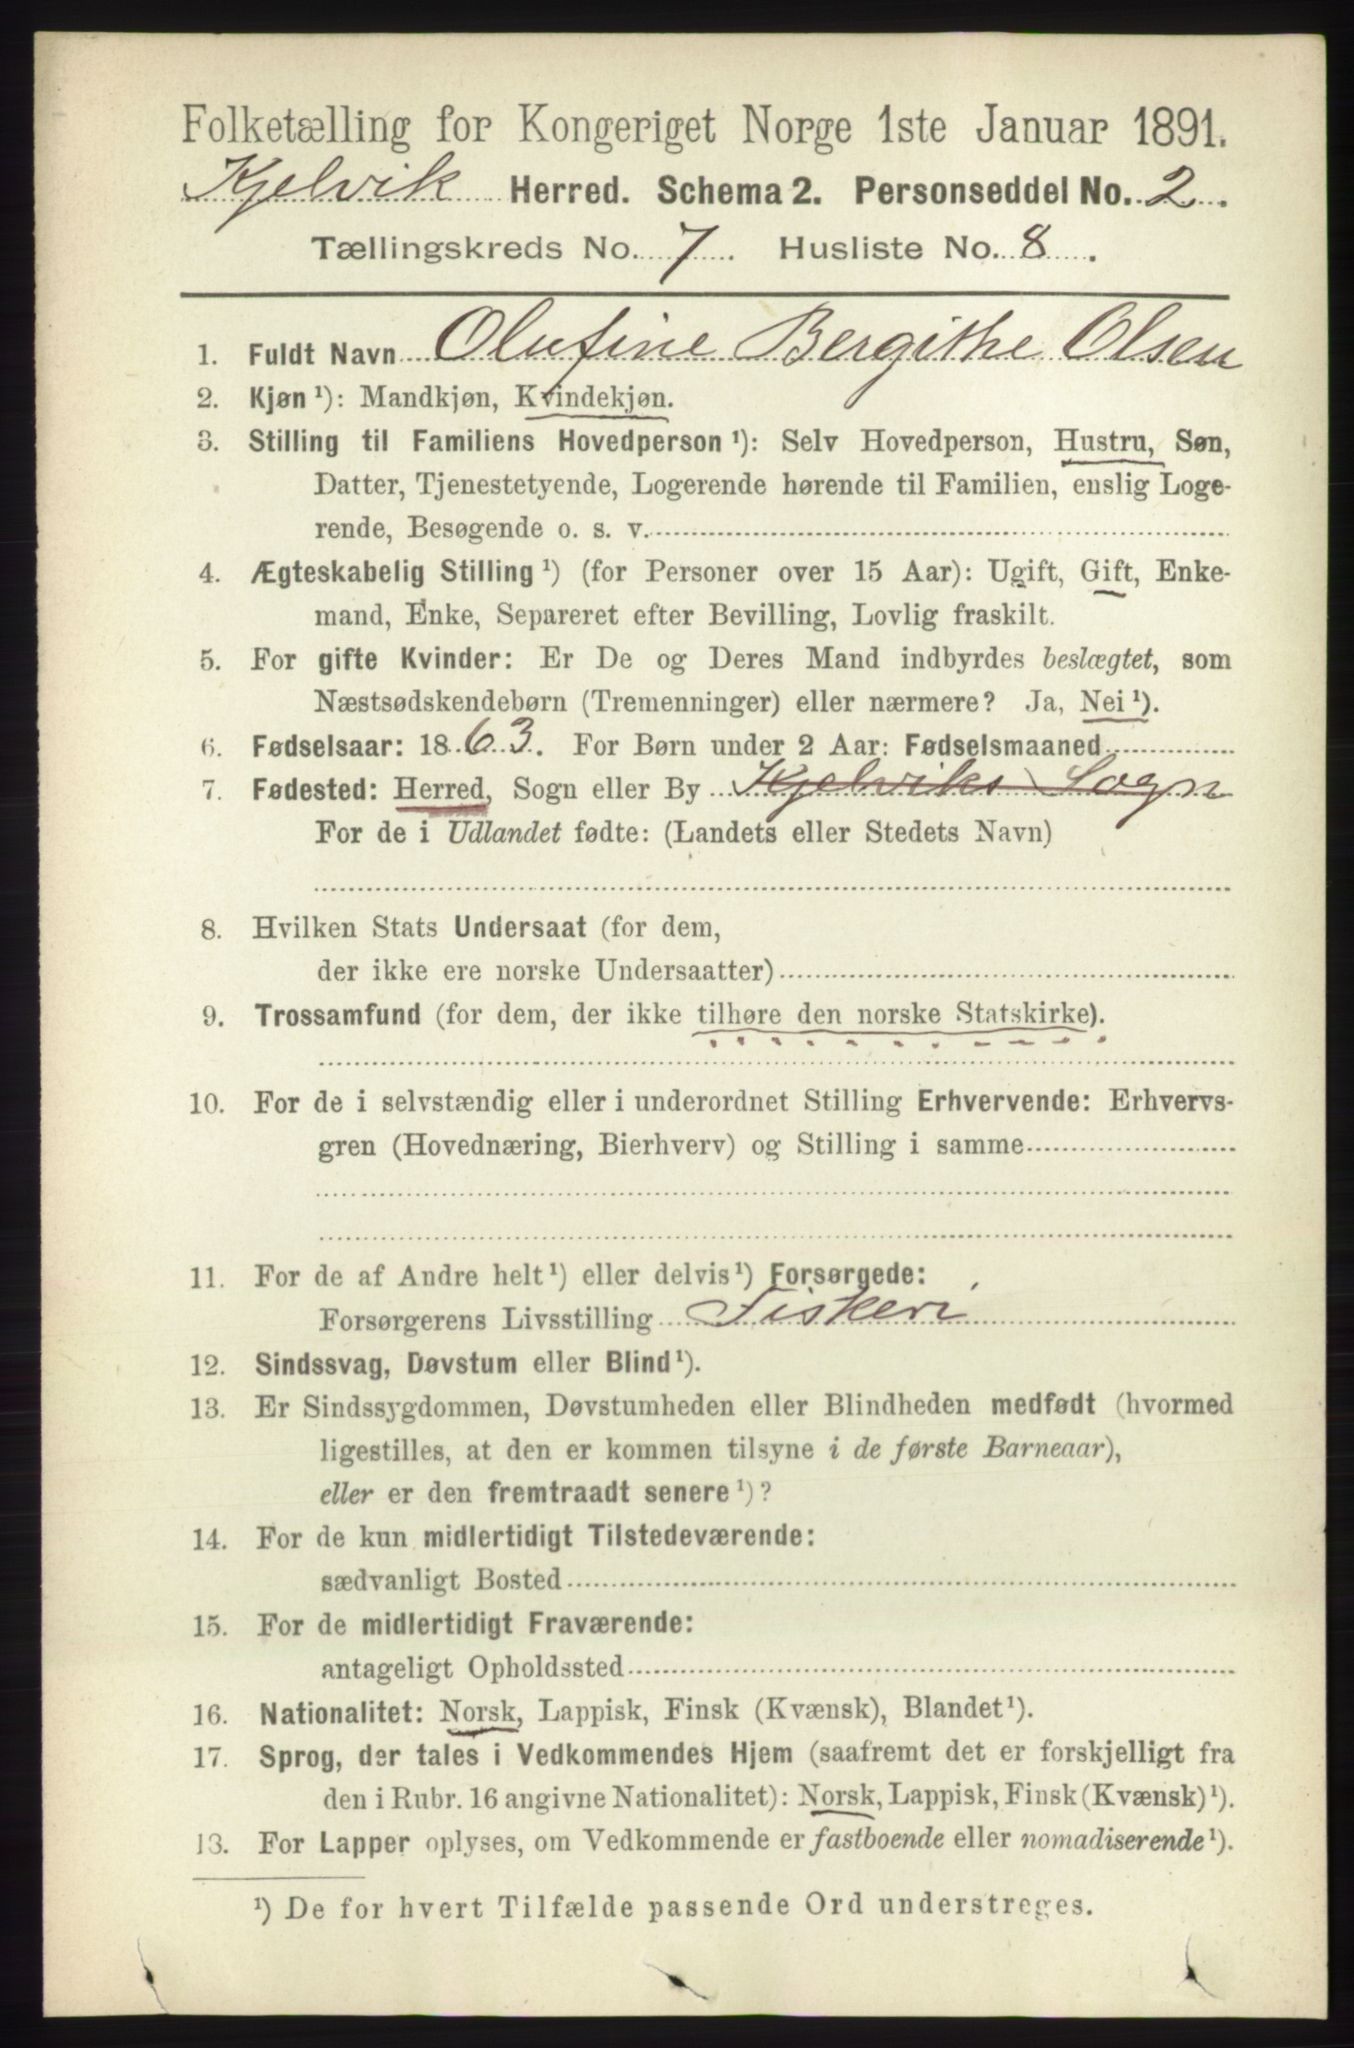 Folketælling for Kongeriget Norge 1ste Januar 1891.
Kjelvik Herred. Schema 2. Personseddel No. 2.
Tællingskreds No. 7. Husliste No. 8.
1. Fuldt Navn Olufine Bergithe Olsen
2. Kjøn ¹): Mandkjøn, Kvindekjøn.
3. Stilling til Familiens Hovedperson ¹): Selv Hovedperson, Hustru, Søn,
Datter, Tjenestetyende, Logerende hørende til Familien, enslig Loge-
rende, Besøgende o. s. v.
4. Ægteskabelig Stilling ¹) (for Personer over 15 Aar): Ugift, Gift, Enke-
mand, Enke, Separeret efter Bevilling, Lovlig fraskilt.
5. For gifte Kvinder: Er De og Deres Mand indbyrdes beslægtet, som
Næstsødskendebørn (Tremenninger) eller nærmere? Ja, Nei ¹).
6. Fødselsaar: 1863. For Børn under 2 Aar: Fødselsmaaned
7. Fødested: Herred, Sogn eller By Kjelviks Sogn
For de i Udlandet fødte: (Landets eller Stedets Navn)
8. Hvilken Stats Undersaat (for dem,
der ikke ere norske Undersaatter)
9. Trossamfund (for dem, der ikke tilhøre den norske Statskirke).
10. For de i selvstændig eller i underordnet Stilling Erhvervende: Erhvervs-
gren (Hovednæring, Bierhverv) og Stilling i samme
11. For de af Andre helt ¹) eller delvis ¹) Forsørgede:
Forsørgerens Livsstilling Fiskeri
12. Sindssvag, Døvstum eller Blind ¹).
13. Er Sindssygdommen, Døvstumheden eller Blindheden medfødt (hvormed
ligestilles, at den er kommen tilsyne i de første Barneaar),
eller er den fremtraadt senere ¹)?
14. For de kun midlertidigt Tilstedeværende:
sædvanligt Bosted
15. For de midlertidigt Fraværende:
antageligt Opholdssted
16. Nationalitet: Norsk, Lappisk, Finsk (Kvænsk), Blandet ¹).
17. Sprog, der tales i Vedkommendes Hjem (saafremt det er forskjelligt fra
den i Rubr. 16 angivne Nationalitet): Norsk, Lappisk, Finsk (Kvænsk) ¹).
13. For Lapper oplyses, om Vedkommende er fastboende eller nomadiserende ¹).
¹) De for hvert Tilfælde passende Ord understreges.